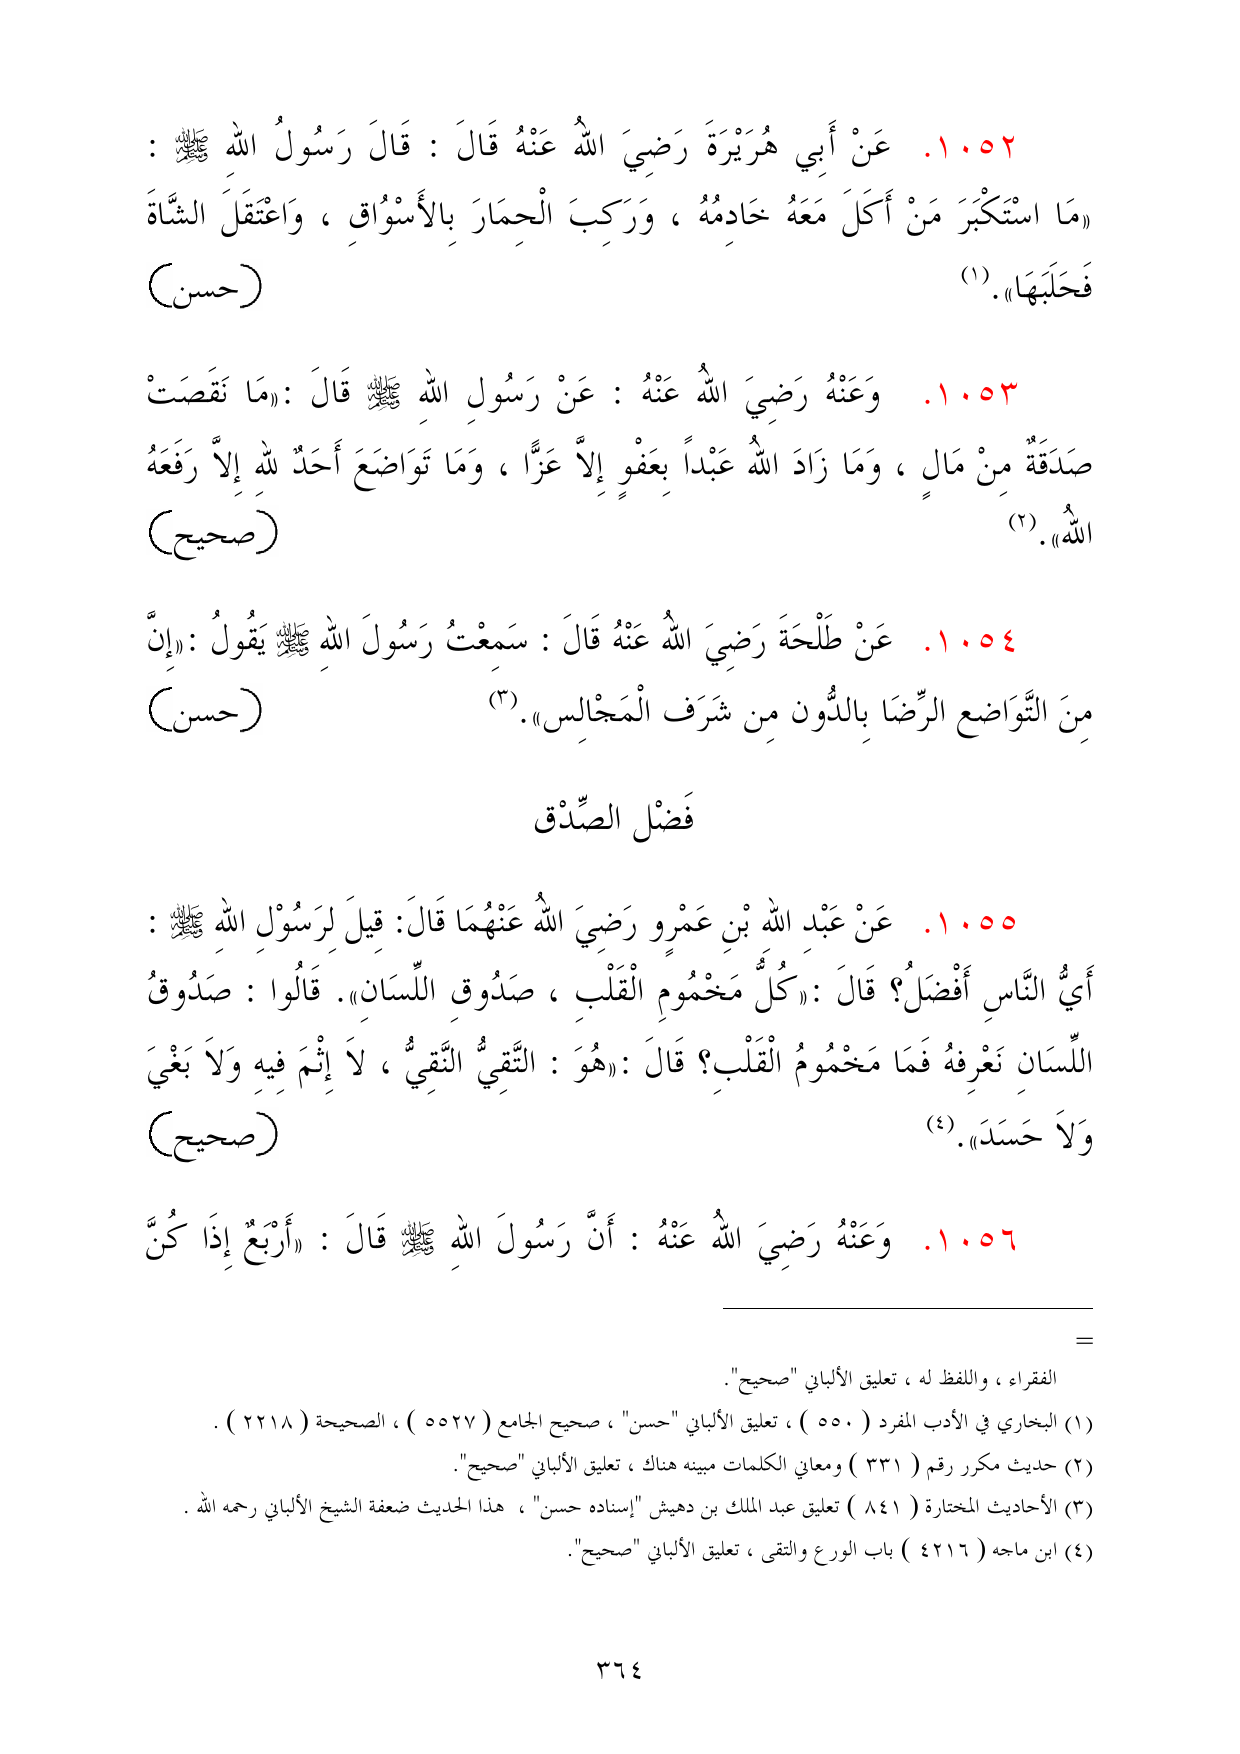 ١٠٥٢. عَنْ أَبِي هُرَيْرَةَ رَضِيَ اللهُ عَنْهُ قَالَ : قَالَ رَسُولُ اللهِ ﷺ :
«مَا اسْتَكْبَرَ مَنْ أَكَلَ مَعَهُ خَادِمُهُ ، وَرَكِبَ الْحِمَارَ بِالأَسْوُاقِ ، وَاعْتَقَلَ الشَّاةَ
فَحَلَبَهَا».(١) (حسن)
١٠٥٣. وَعَنْهُ رَضِيَ اللهُ عَنْهُ : عَنْ رَسُولِ اللهِ ﷺ قَالَ :«مَا نَقَصَتْ
صَدَقَةٌ مِنْ مَالٍ ، وَمَا زَادَ اللهُ عَبْداً بِعَفْوٍ إِلاَّ عَزًّا ، وَمَا تَوَاضَعَ أَحَدٌ للهِ إِلاَّ رَفَعَهُ
اللهُ».(٢) (صحيح)
١٠٥٤. عَنْ طَلْحَةَ رَضِيَ اللهُ عَنْهُ قَالَ : سَمِعْتُ رَسُولَ اللهِ ﷺ يَقُولُ :«إِنَّ
مِنَ التَّوَاضعِ الرِّضَا بِالدُّون مِن شَرَف الْمَجْالِس».(٣) (حسن)
فَضْل الصِّدْق
١٠٥٥. عَنْ عَبْدِ اللهِ بْنِ عَمْرٍو رَضِيَ اللهُ عَنْهُمَا قَالَ: قِيلَ لِرَسُوْلِ اللهِ ﷺ :
أَيُّ النَّاسِ أَفْضَلُ؟ قَالَ :«كُلُّ مَخْمُومِ الْقَلْبِ ، صَدُوقِ اللِّسَانِ». قَالُوا : صَدُوقُ
اللِّسَانِ نَعْرِفهُ فَمَا مَخْمُومُ الْقَلْبِ؟ قَالَ :«هُوَ : التَّقِيُّ النَّقِيُّ ، لاَ إِثْمَ فِيهِ وَلاَ بَغْيَ
وَلاَ حَسَدَ».(٤) (صحيح)
١٠٥٦. وَعَنْهُ رَضِيَ اللهُ عَنْهُ : أَنَّ رَسُولَ اللهِ ﷺ قَالَ : «أَرْبَعٌ إِذَا كُنَّ
=
الفقراء ، واللفظ له ، تعليق الألباني "صحيح".
(١) البخاري في الأدب المفرد ( ٥٥٠ ) ، تعليق الألباني "حسن" ، صحيح الجامع ( ٥٥٢٧ ) ، الصحيحة ( ٢٢١٨ ) .
(٢) حديث مكرر رقم ( ٣٣١ ) ومعاني الكلمات مبينه هناك ، تعليق الألباني "صحيح".
(٣) الأحاديث المختارة ( ٨٤١ ) تعليق عبد الملك بن دهيش "إسناده حسن" ، هذا الحديث ضعفة الشيخ الألباني رحمه الله .
(٤) ابن ماجه ( ٤٢١٦ ) باب الورع والتقى ، تعليق الألباني "صحيح".
٣٦٤